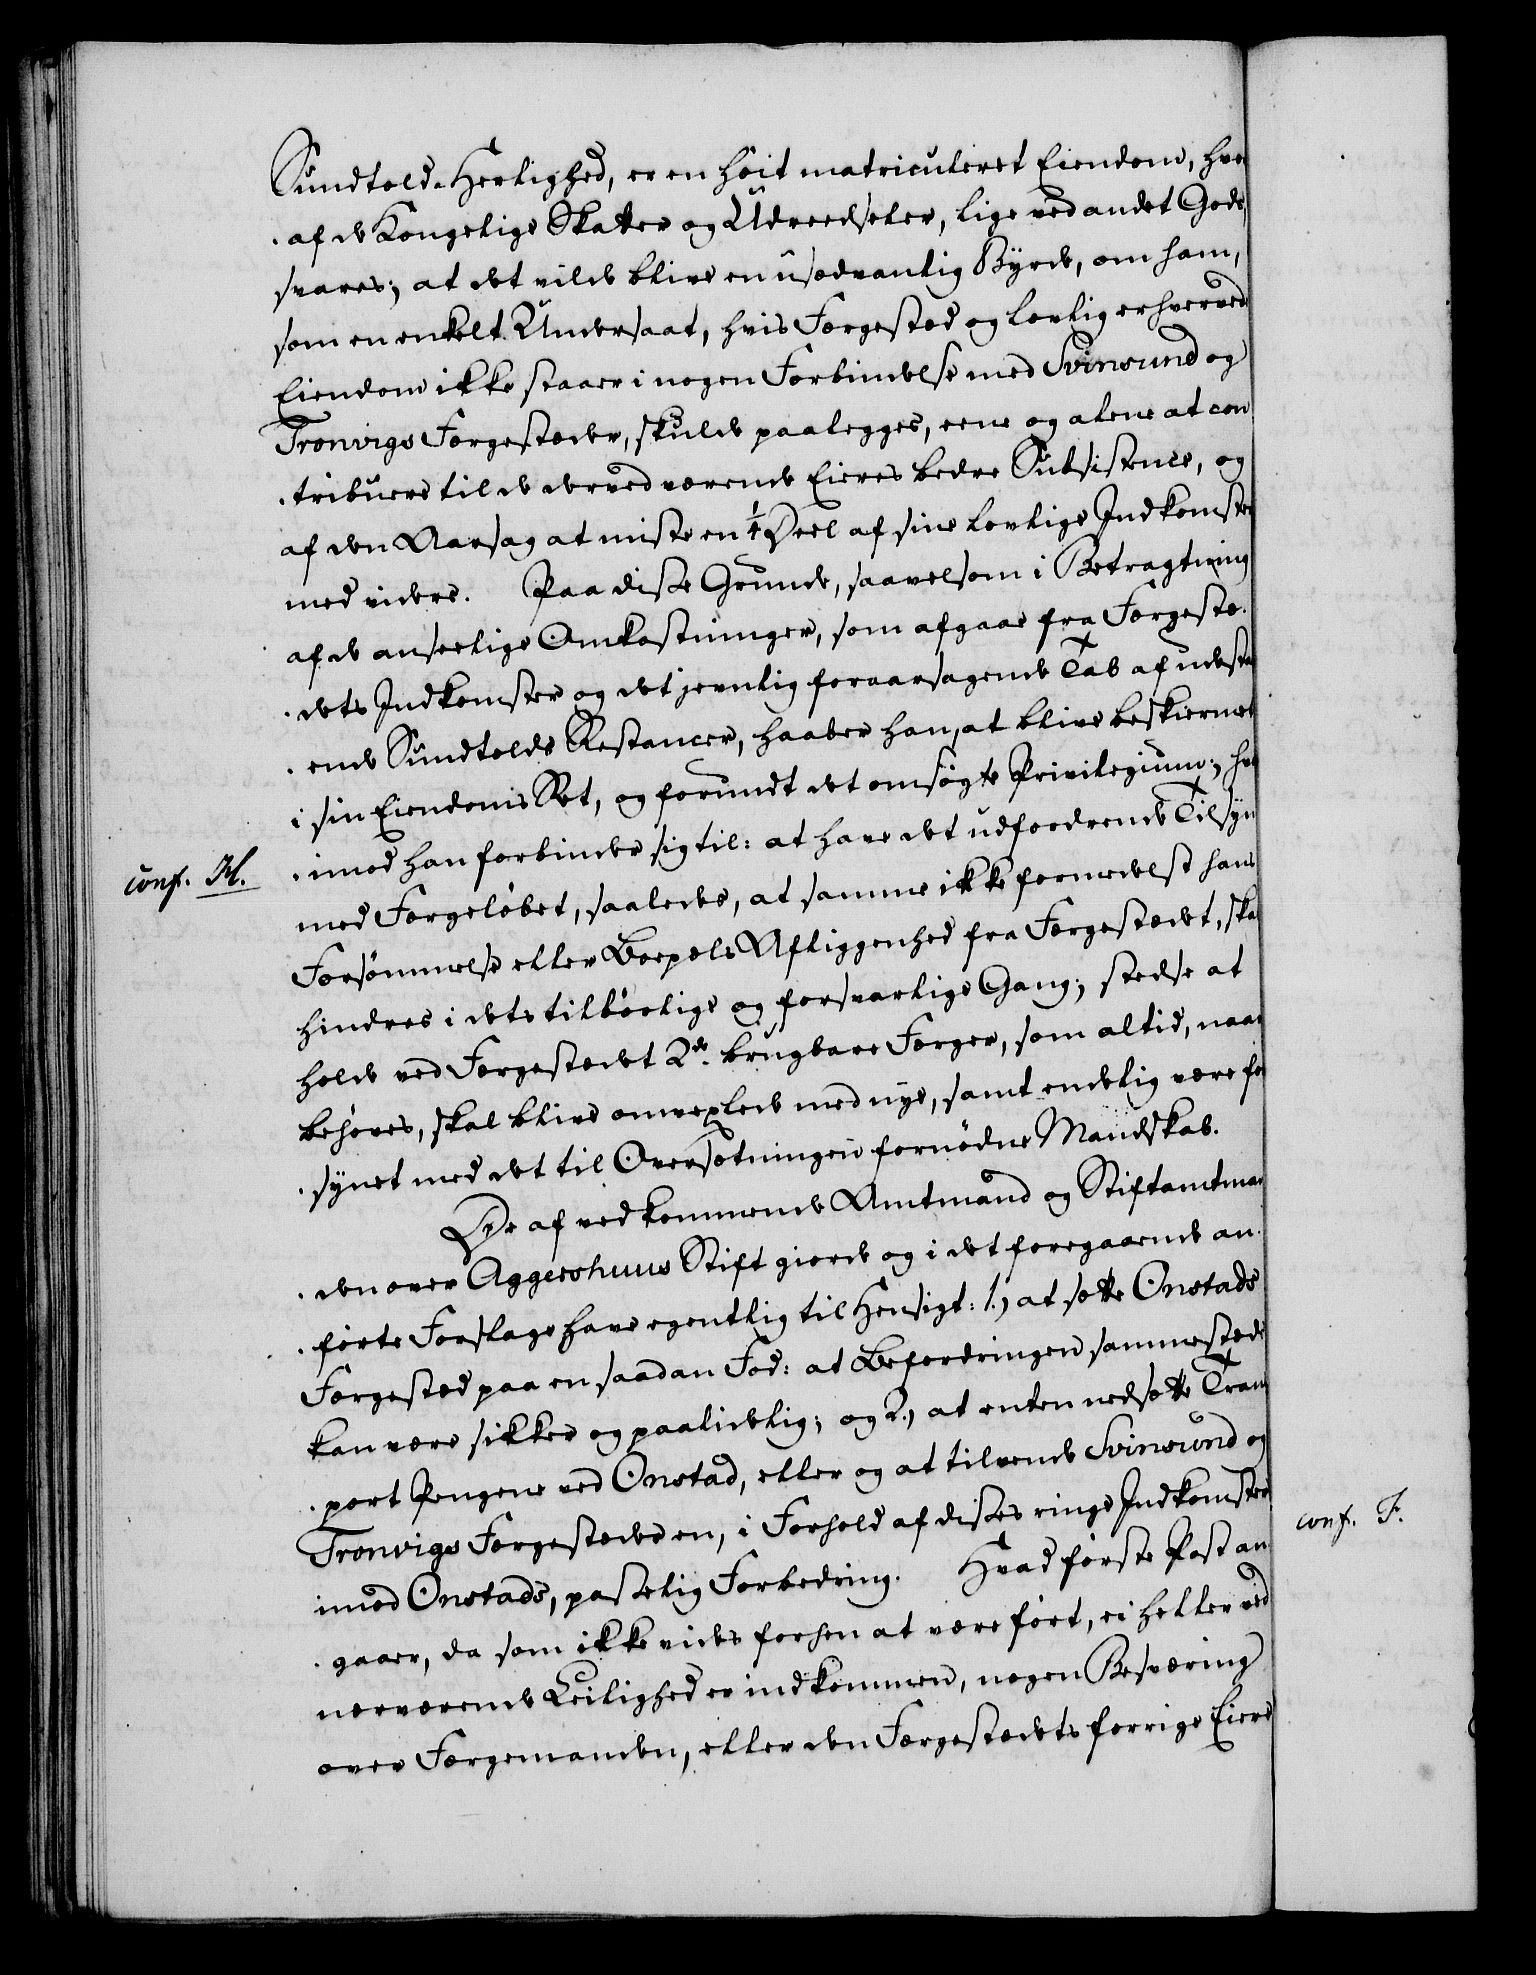 Sundtold-Herlighed, er en høit matriculeret Eiendom, hvor
af de Kongelige Skatter og Udreedseler, lige ved andet Gods,
svares; at det vilde blive en usædvanlig Byrde, om ham,
som en enkelt Undersaat, hvis Færgestæd og lovlig erhvervede
Eiendom ikke staaer i nogen Forbindelse med Svinesund og
Trønvigs Færgestæder, skulde paalegges, eene og alene at con
tribuere til de derved værende Eieres bedre Subsistence, og
af den Aarsag at miste en 1/4 Deel af sine lovlige Indkomster
med videre. Paa disse Grunde, saavelsom i Betragtning
af de anseelige Omkostninger, som afgaae fra Færgestæ-
dets Indkomster og det jevnlig foraarsagende Tab af udestaa
ende Sundtolds Restancer, haaber han, at blive beskiermet
i sin Eiendoms Ret, og forundt det omsøgte Privilegium; hvor
imod han forbinder sig til: at have det udfordrende Tilsyn
conf. H.
med Færgeløbet, saaledes, at samme ikke formedelst hans
Forsømmelse eller Boepæls Afliggenhed fra Færgestædet, skal
hindres i dets tilbørlige og forsvarlige Gang; stedse at
holde ved Færgestædet 2de brugbare Færger, som altid, naar
behøves, skal blive omvexlede med nye, samt endelig være for
synet med det til Oversætningen fornødne Mandskab.
De af vedkommende Amtmand og Stiftamtman
den over Aggershuus Stift giorde og i det foregaaende an-
førte Forslage have egentlig til Hensigt: 1.) at sætte Onstads
Færgestæd paa en saadan Fod: at Befordringen sammestæds
kan være sikker og paalidelig; og 2.) at enten nedsætte Trans
port Pengene ved Onstad, eller og at tilvende Svinesund og
Trønvigs Færgestæder en, i Forhold af disses ringe Indkomster
conf. F.
imod Onstads, passelig Forbedring. Hvad første Post an
gaaer, da som ikke vides forhen at være ført, ei heller ved
nærværende Leilighed er indkommen, nogen Besværing
over Færgemanden, eller den Færgestædets forrige Eiere